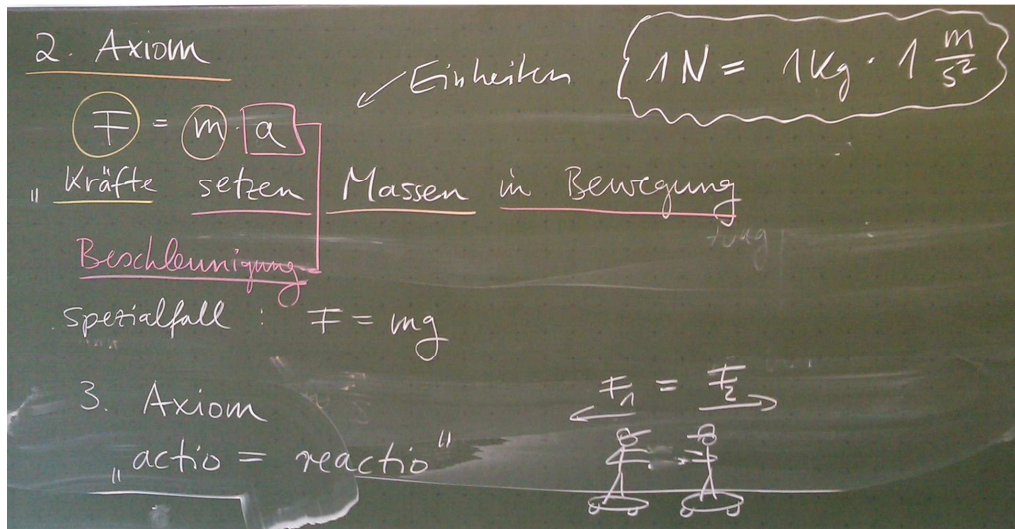 2. Axiom
Einheiten
1 N = 1 Kg · 1 m/s²
F = m · a
„ Kräfte setzen Massen in Bewegung
Beschleunigung
Spezialfall : F = mg
3. Axiom
„actio = reactio"
F₁ = F₂